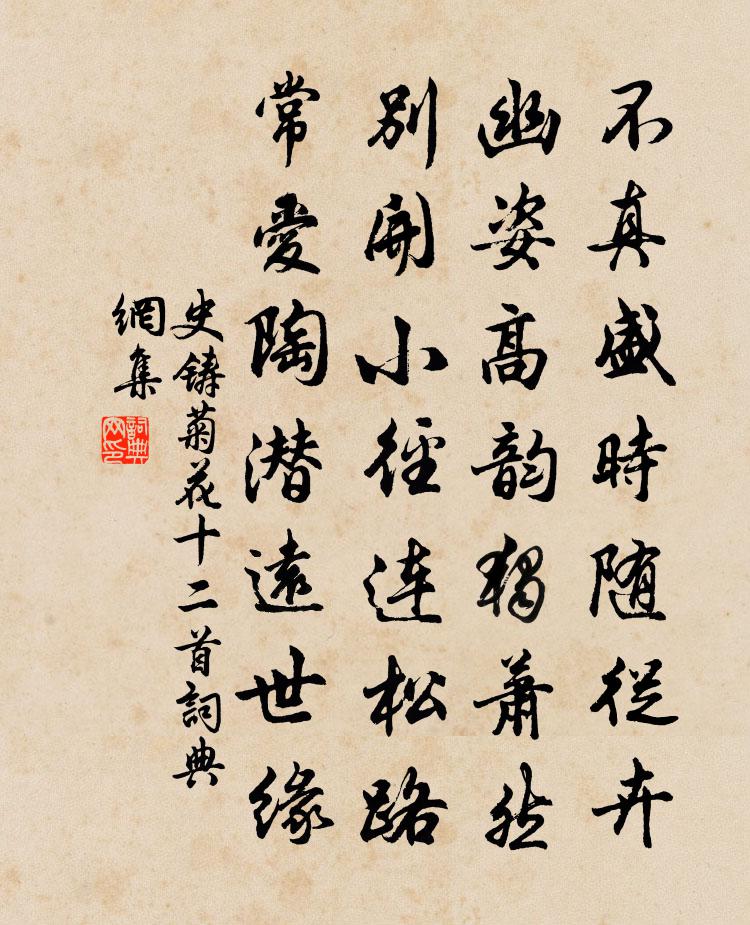 不真盛時随從卉
幽姿高韵獨蕭然
別開小徑連松路
常愛陶潛遠世緣
史鑄菊花十二首詞典
網集
詞典
网印